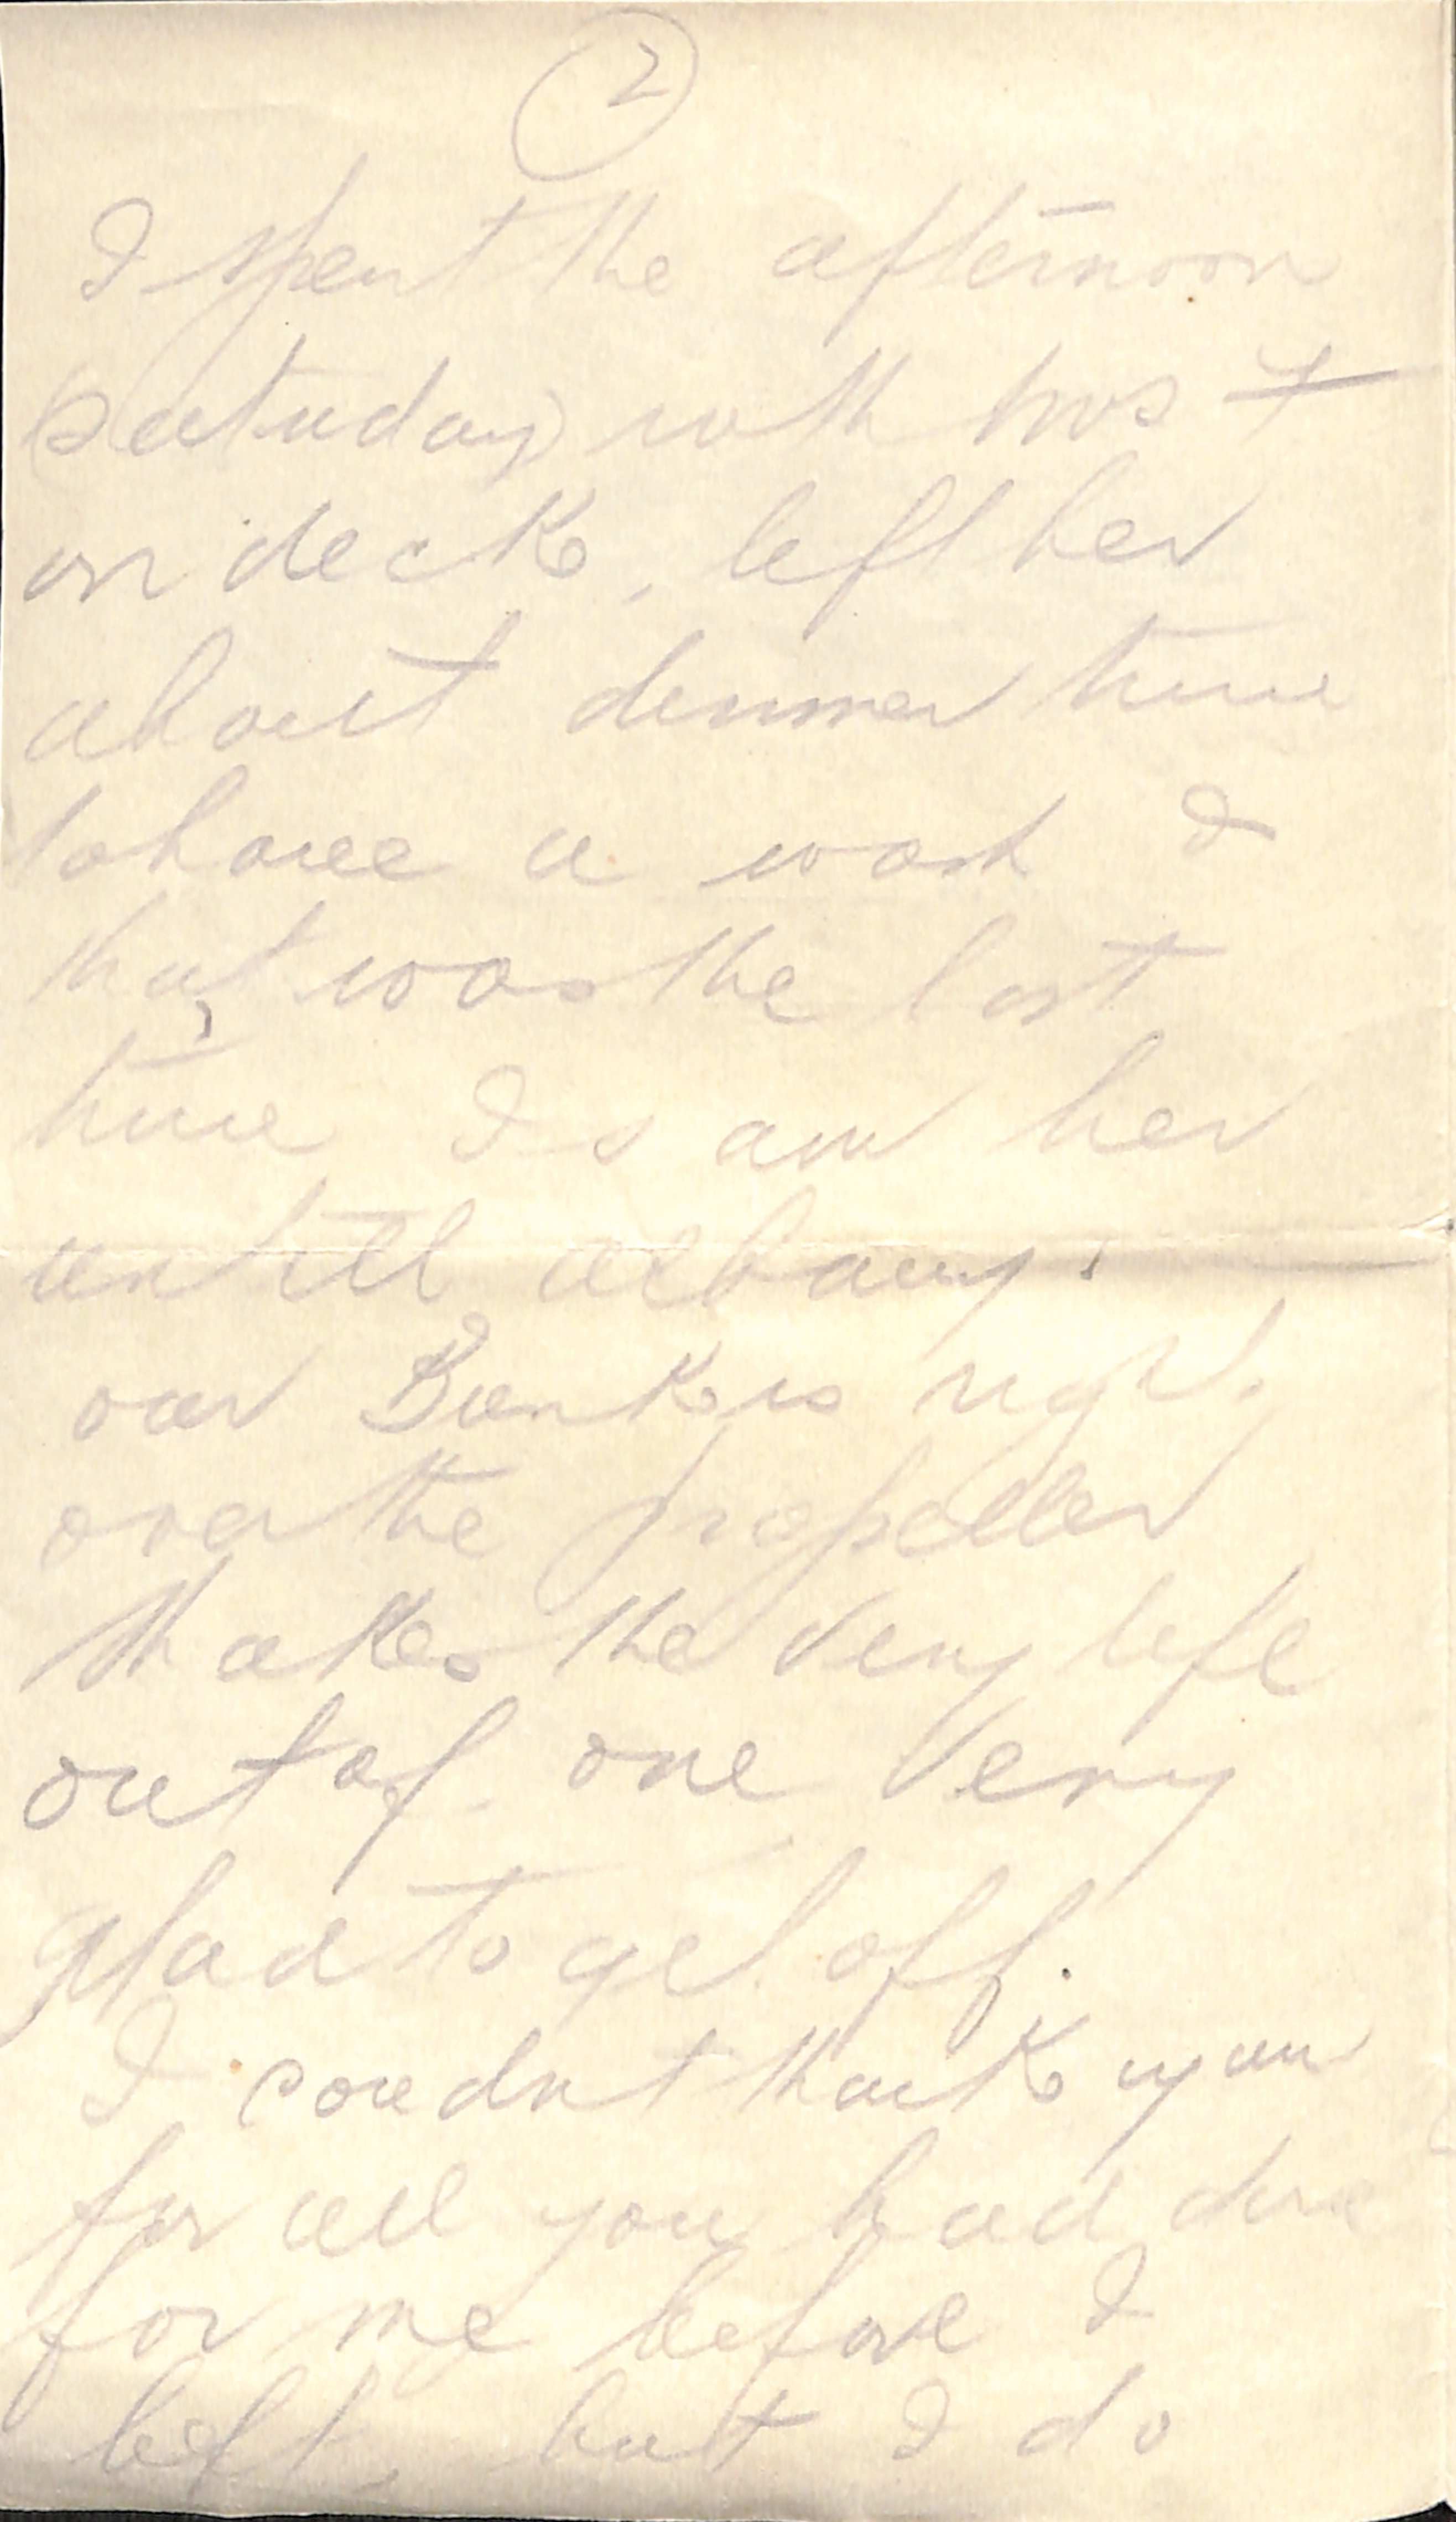 2
I spent the afternoon
Saturday with Mrs F
on deck, left her
about dinner time
to have a wash &
that was the last
time I saw her
until Albany.
our Bunk is right
over the propeller
shakes the very life
out of one very
glad to get off.
I couldnt thank you
for all you had done
for me before I
left, but I do